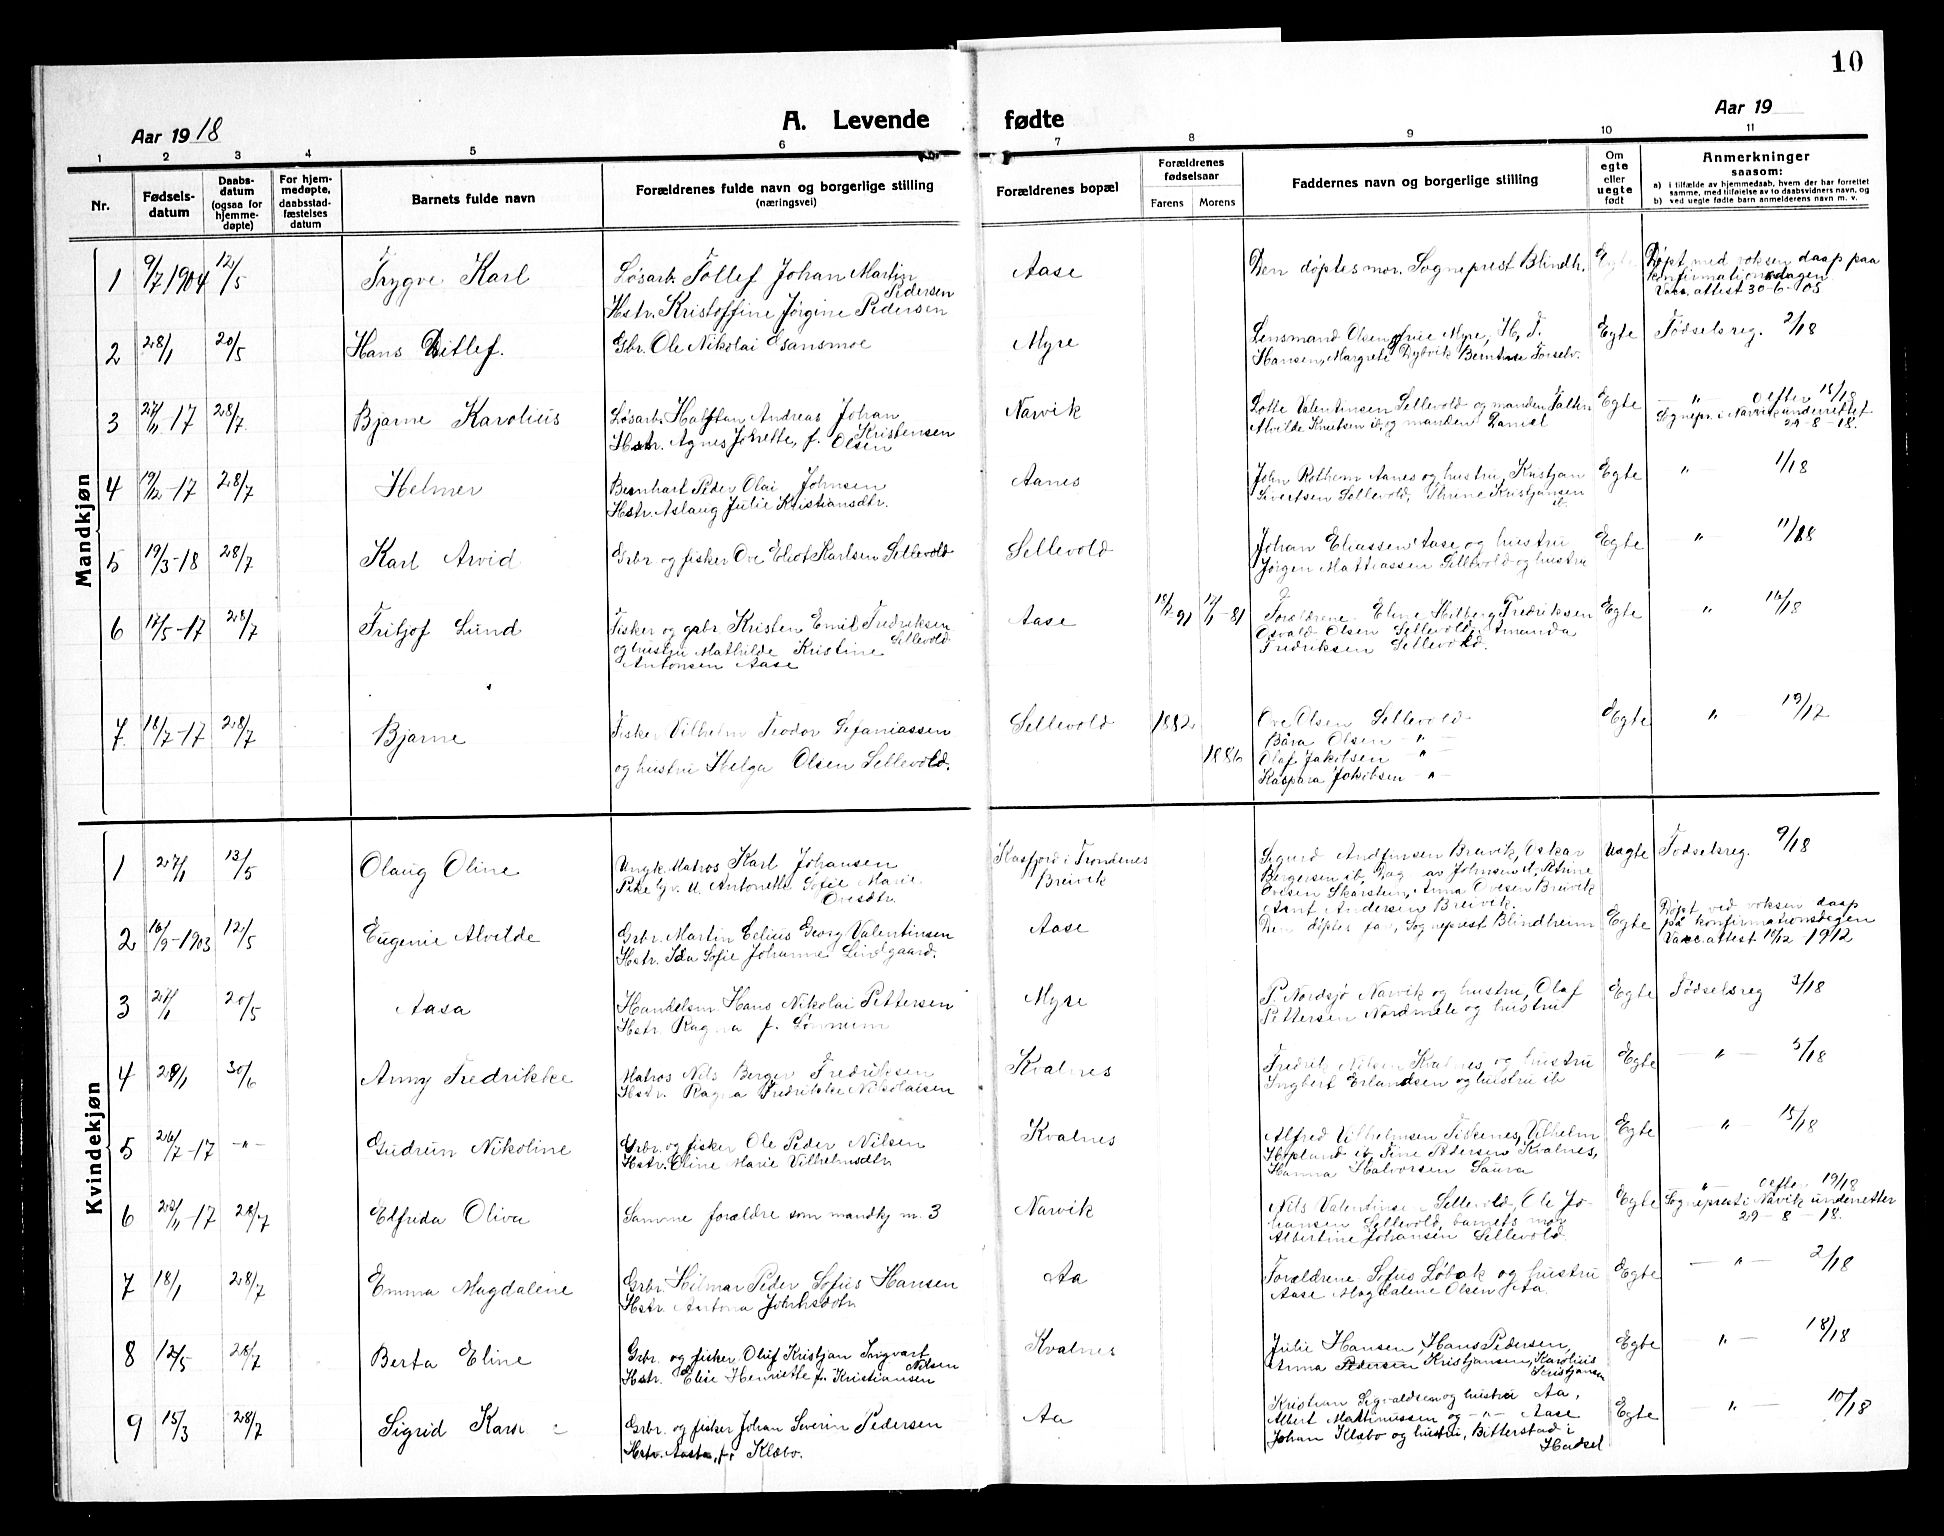 10
Aar 1918
A. Levende fødte
Aar 19
1 2 3 4 5 6 7 8 9 10 11
Nr.
Fødsels-
datum
Daabs-
datum
(ogsaa for
hjemme-
døpte)
For hjem-
medøpte,
daabsstad-
fæstelses
datum
Barnets fulde navn
Forældrenes fulde navn og borgerlige stilling
(næringsvei)
Forældrenes bopæl
Forældrenes
fødselsaar
Farens Morens
Faddernes navn og borgerlige stilling
Om
egte
eller
uegte
født
Anmerkninger
saasom:
a) i tilfælde av hjemmedaab, hvem der har forrettet
samme, med tilføielse av to daabsvidners navn, og
b) ved uegte fødte barn anmelderens navn m. v.
Mandkjøn
1 9/7 1904 12/5 Trygve Karl Løsarb. Tollef Johan Martin Aase Den døptes mor. Sogneprest Blindh. Egte Døpt med voksen daap paa
Pedersen konfirmationsdagen
Hstr. Kristoffine Jørgine Pedersen Vacc. attest 30-6-05
2 28/1 20/5 Hans Ditlef. Gbr. Ole Nikolai Gansmoe Myre Lensmand Olsen, frue Myre, H. F. Egte Fødselsreg. 2/18
Hansen, Margrete Dybvik
3 27/11 17 28/7 Bjarne Karolius Løsarb. Halftan Andreas Johan Narvik Lotte Valentinsen Sellevold og manden Egte — " — Oefter 15/18
Kristensen Alvilde Knutsen ib, og manden Daniel Sognepr. i Narvik underrettet
Hstr. Agnes f. Olsen 29-8-18.
4 19/12-17 28/7 Helmer Bernhart Peder Olai Johnsen Aanes John Rothem Aanes og hustru, Kristjan Egte " — 1/18
Hstr. Aslaug Julie Kristiansdtr. Sivertsen Sellevold, Thrine Kristjansen ib
5 19/3-18 28/7 Karl Arvid Grbr og fisker Ove Eliot Karlsen Sellevold Sellevold Johan Eliassen Aase og hustru Egte — " — 11/18
Jørgen Mattiassen Sellevold og hustru
6 17/5-17 28/7 Fritjof Lund Fisker og grbr. Kristen Emil Fredriksen Aase Forældrene, Eline Fredriksen Egte " 16/18
Sellevold Osvald Olsen Sellevold, Amanda
og hustru Mathilde Kristine Fredriksen Sellevold.
Antonsen Aase
7 18/7-17 28/7 Bjarne Fisker Vilhelm Teodor Sefaniassen Sellevold 1882 Ove Olsen Sellevold Egte " — 19/17
Bāra Olsen — " —
og hustru Helga Olsen Sellevold. 1886 Olaf Jakobsen "
Kaspara Jakobsen — " —
Kvindekjøn
1 27/1 13/5 Olaug Oline Ungk. Matros Karl Johansen Kasfjord i Trondenes Sigurd Andfinsen Breivik, Oskar Uegte Fødselsreg. 9/18
Pike Antonette Sofie Marie Breivik Bergersen ib, Dag av Johnsen ib, Petrine
Ovesdtr. Ovesen Skarstein, Anna Ovesen Breivik
Andersen Breivik.
2 16/9-1903 12/5 Eugenie Alvilde Grbr. Martin Celius Georg Valentinsen Aase Den døptes far, Sogneprest Blindheim Egte Døpt ved voksen daap
på konfirmationsdagen
Hstr. Ida Sofie Johanne Lindgaard. Vacc. attest 18/12 1912
3 27/1 20/5 Aasa Handelsm Hans Nikolai Pettersen Myre P. Nordsjö Narvik og hustru, Olaf Egte Fødselsreg 3/18
Hstr. Ragna f. Lønnum Pettersen Nordmele og hustru
4 29/1 30/6 Anny Fredrikke Matros Nils Berger Fredriksen Kvalnes Fredrik Nilsen Kvalnes og hustru Egte — " — 5/18
Hstr. Ragna Fredrikke Nikolaisen Ingbert Erlandsen og hustru ib
5 26/7-17 — " — Gudrun Nikoline Grbr. og fisker Ole Peder Nilsen Kvalnes Alfred Vilhelmsen Fiskenes, Vilhelm Egte — " — 15/18
Hstr. Eline Marie Vilhelmsdtr. Hopland ib, Tine Pedersen Kvalnes,
Hanna Halvorsen Saura
6 23/11-17 28/7 Elfrida Oliva Samme forældre som mandkj nr. 3 Narvik Nils Valentinsen Sellevold, Ole Jo- Egte " — Oefter 19/18
hansen Sellevold, barnets mor Sogneprest i Narvik underrettet
Albertine Johansen Sellevold. 29-8-18.
7 18/1 28/7 Emma Magdalene Grbr. Hilmar Peder Sofus Hansen Aa Forældrene, Sofus Løbak og hustru Egte — " — 2/18
Hstr. Antona Johnsdtr. Aase, Magdalene Olsen Aa.
8 12/5 28/7 Berta Eline Grbr. og fisker Oluf Kristjan Ingvart Kvalnes Julie Hansen, Hans Pedersen, Egte " — 18/18
Nilsen Anna Pedersen Kristjansen, Karolius
Hstr. Elise Henriette f. Kristiansen Kristjansen
9 15/3 28/7 Sigrid Karin Grbr. og fisker Johan Severin Pedersen Aa Kristian Sigvaldsen og hustru Aa, Egte — " — 10/18
Albert Martinussen og — " — Aase
Hstr. Aasta, f. Klæbo. Johan Klæbo og hustru, Bitterstad i
Hadsel